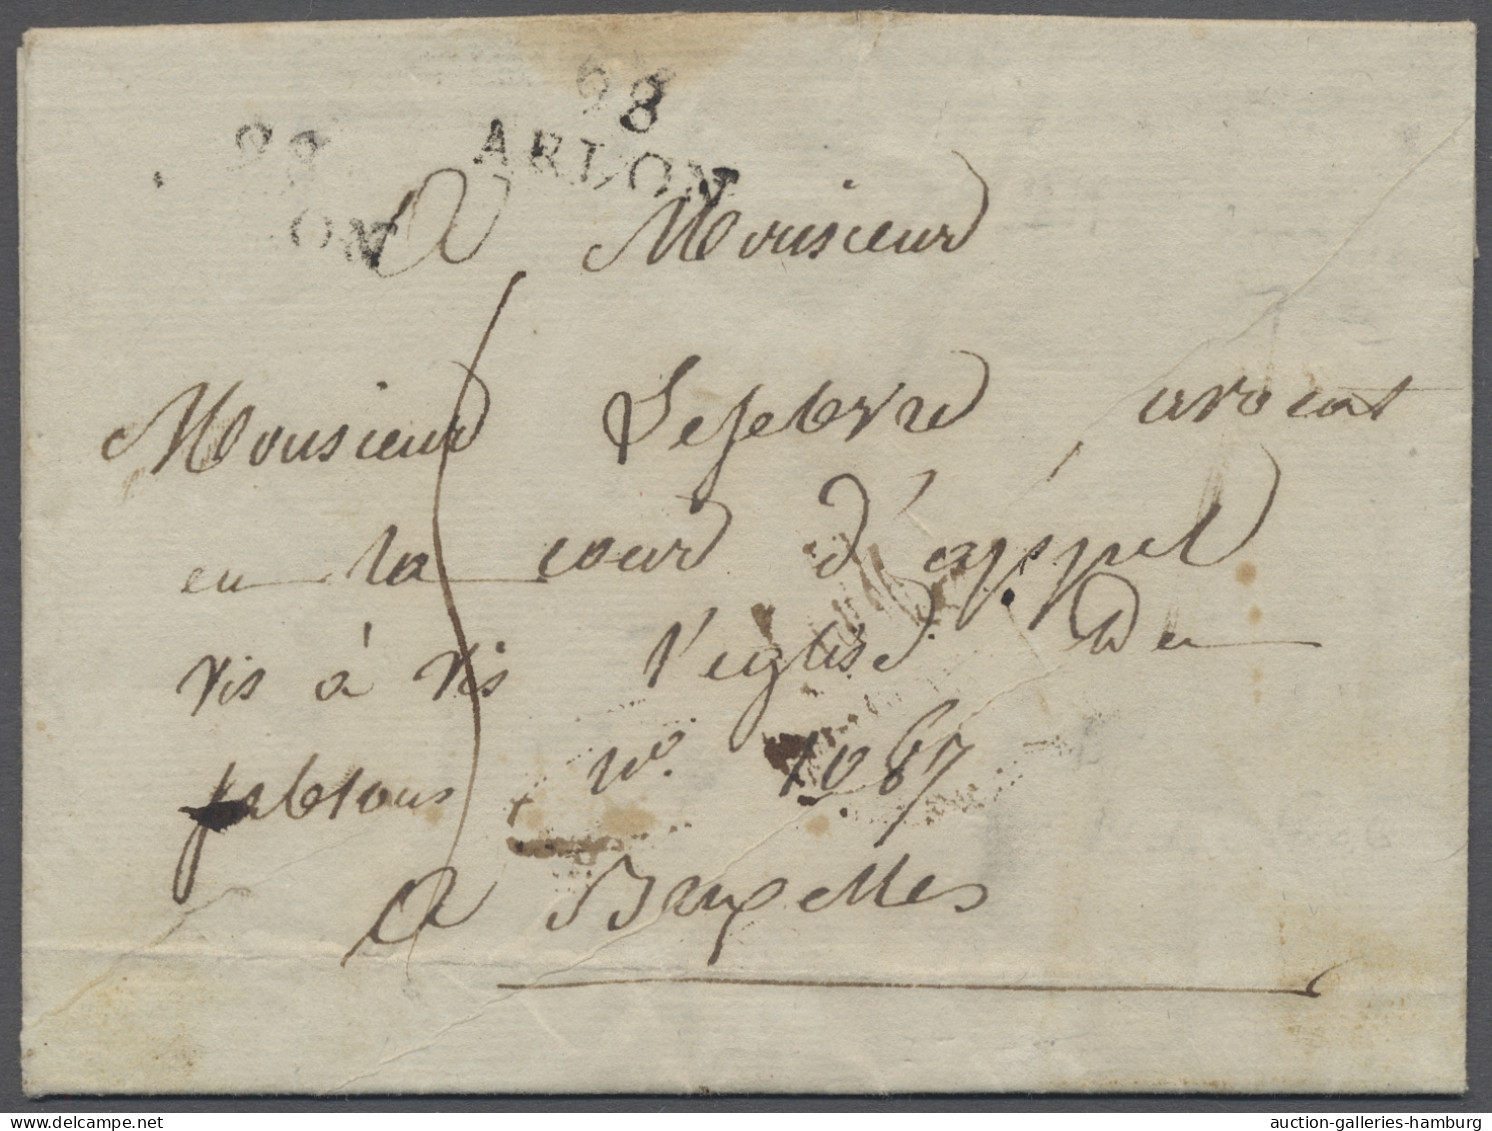 98
ARLON
98
ON
A Monsieur
Monsieur Lefebvre avocat
en la cour d'appel
vis à vis l'eglise de
sablons, n° 1067
A Bruxelles
delcampe.net
auction-galleries-hamburg